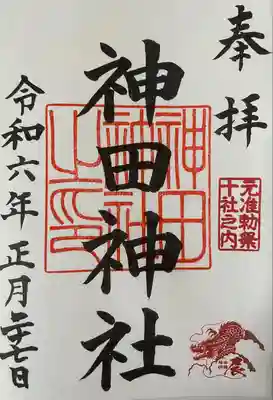 奉拝
元准勅祭
十社之内
辰
神田神社
神田
神社
之印
令和六年 正月二十七日